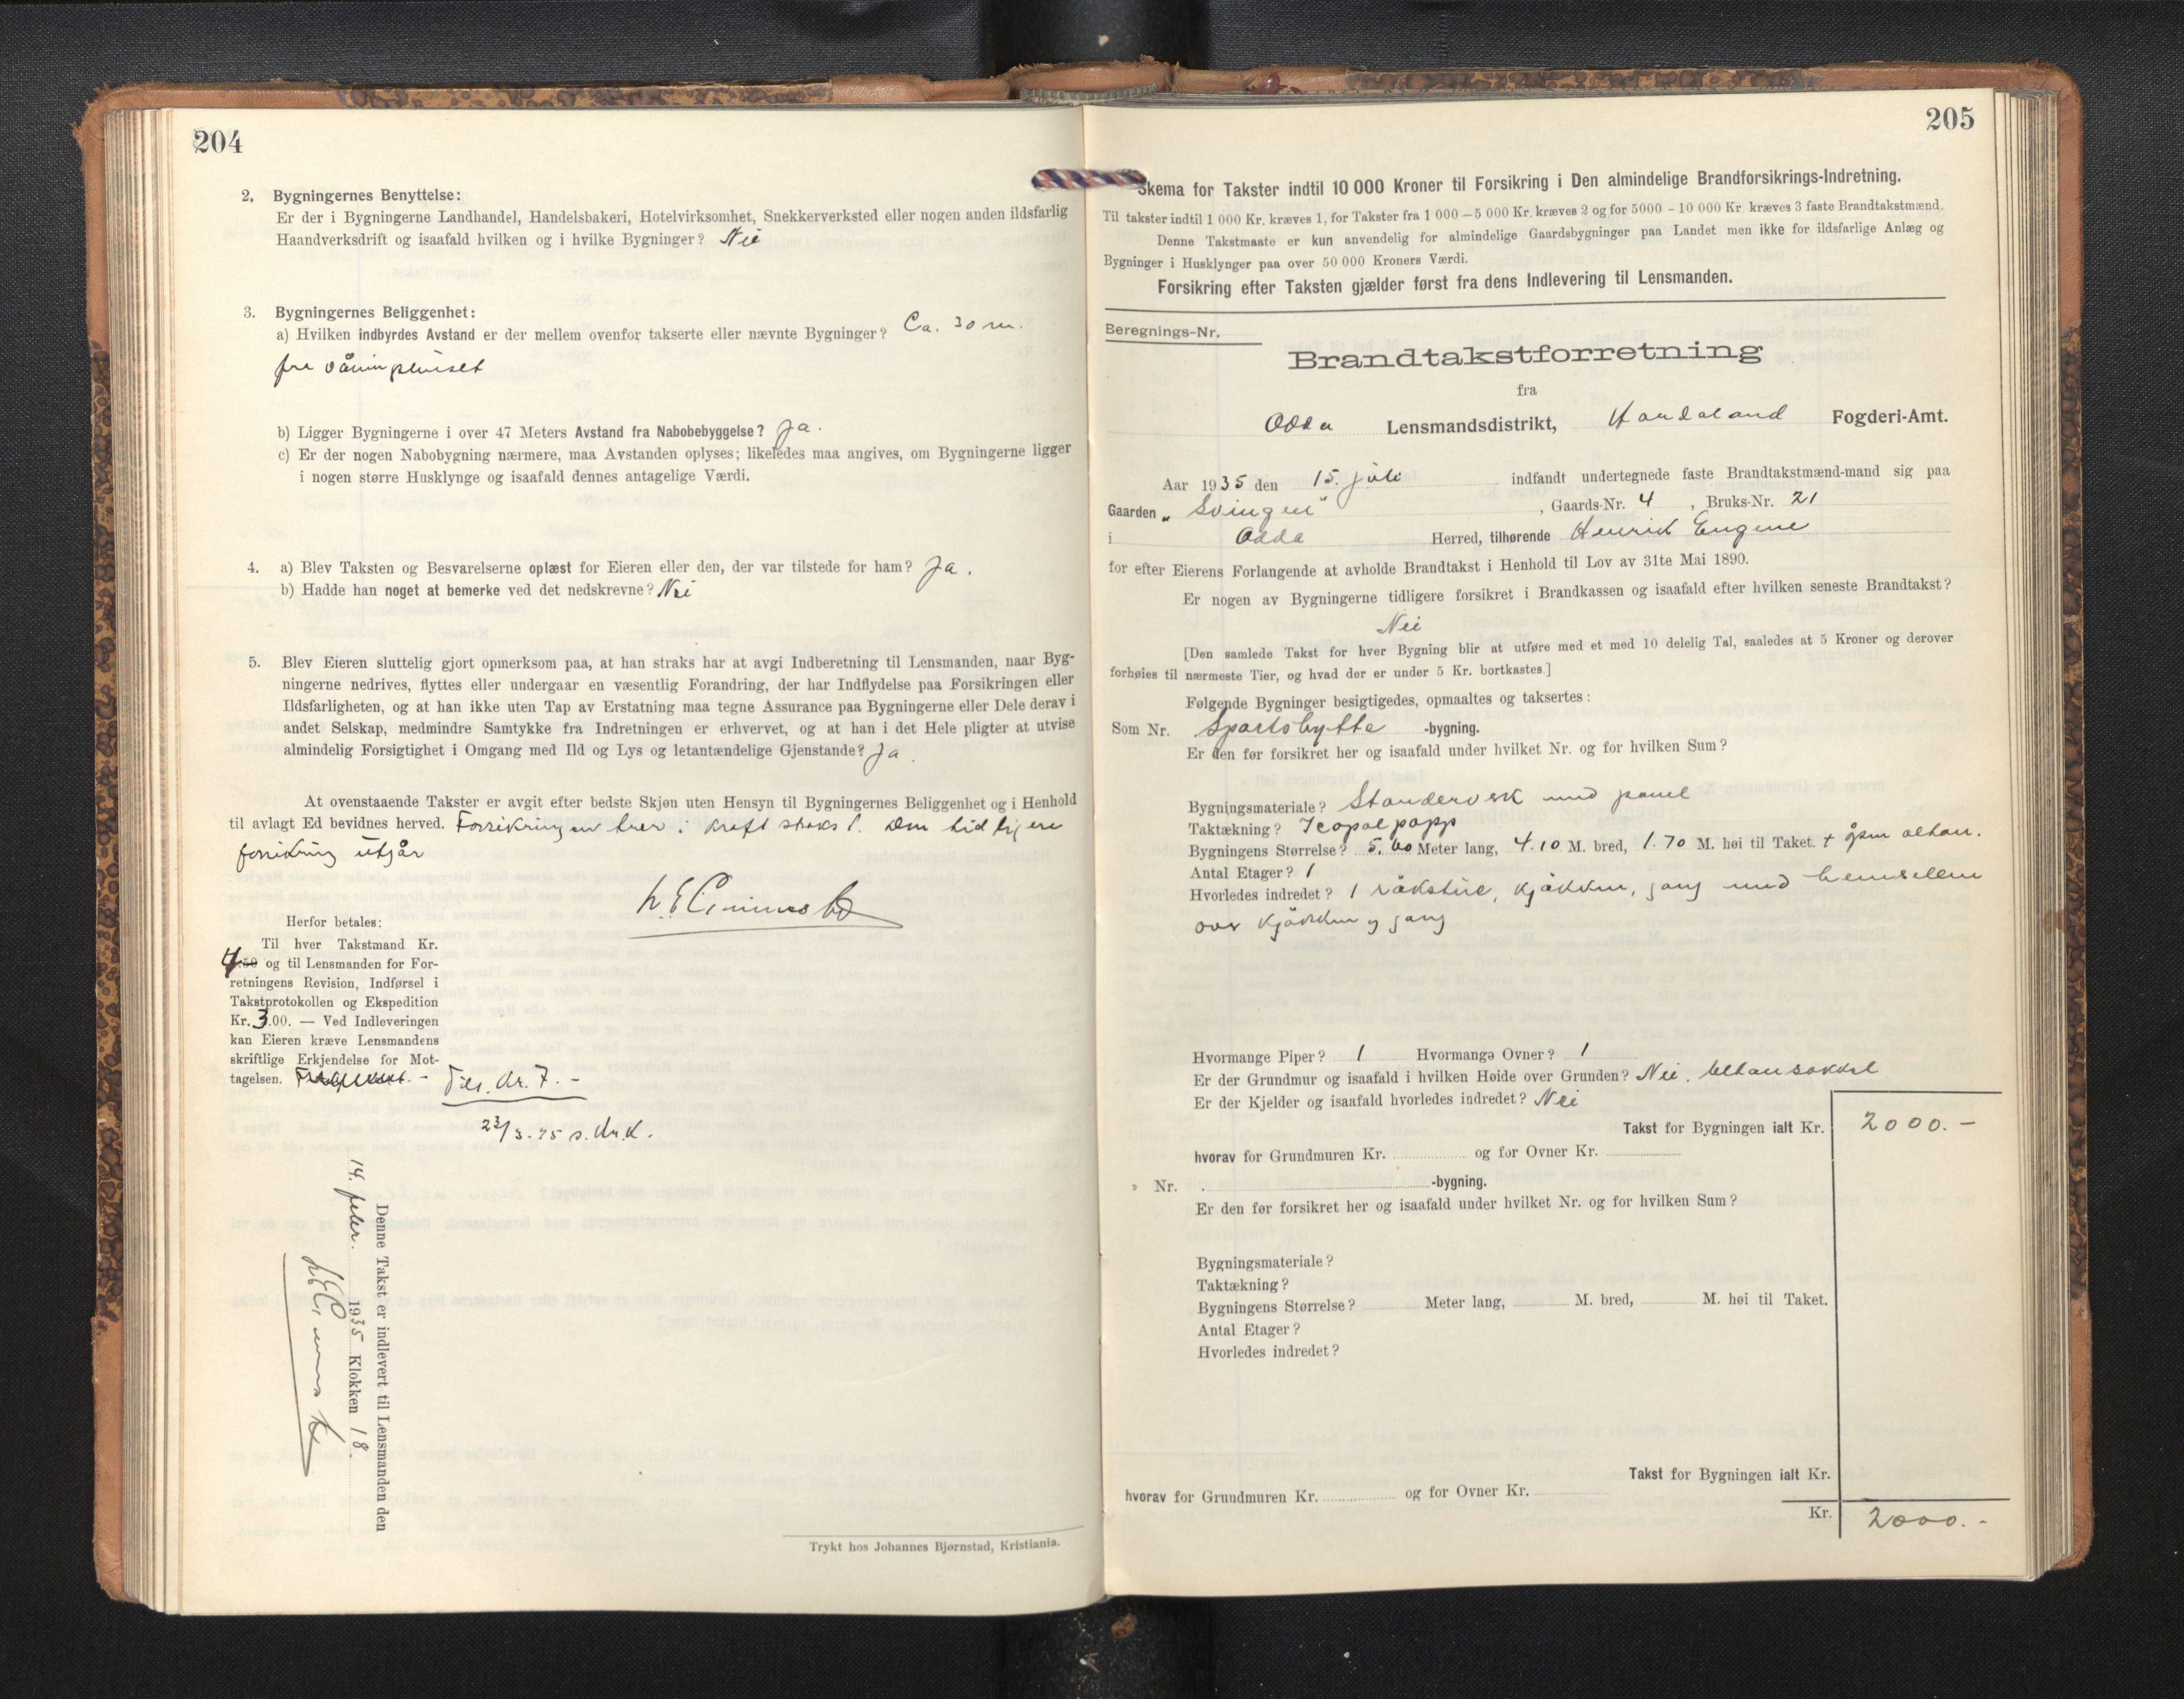 204
2. Bygningernes Benyttelse:
Er der i Bygningerne Landhandel, Handelsbakeri, Hotelvirksomhet, Snekkerverksted eller nogen anden ildsfarlig
Haandverksdrift og isaafald hvilken og i hvilke Bygninger? Nei
3. Bygningernes Beliggenhet:
a) Hvilken indbyrdes Avstand er der mellem ovenfor takserte eller nævnte Bygninger? Ca. 30 m.
fra våningshuset
b) Ligger Bygningerne i over 47 Meters Avstand fra Nabobebyggelse? Ja.
c) Er der nogen Nabobygning nærmere, maa Avstanden oplyses; likeledes maa angives, om Bygningerne ligger
i nogen større Husklynge og isaafald dennes antagelige Værdi.
4. a) Blev Taksten og Besvarelserne oplæst for Eieren eller den, der var tilstede for ham? Ja.
b) Hadde han noget at bemerke ved det nedskrevne? Nei
5. Blev Eieren sluttelig gjort opmerksom paa, at han straks har at avgi Indberetning til Lensmanden, naar Byg-
ningerne nedrives, flyttes eller undergaar en væsentlig Forandring, der har Indflydelse paa Forsikringen eller
Ildsfarligheten, og at han ikke uten Tap av Erstatning maa tegne Assurance paa Bygningerne eller Dele derav i
andet Selskap, medmindre Samtykke fra Indretningen er erhvervet, og at han i det Hele pligter at utvise
almindelig Forsigtighet i Omgang med Ild og Lys og letantændelige Gjenstande? Ja.
At ovenstaaende Takster er avgit efter bedste Skjøn uten Hensyn til Bygningernes Beliggenhet og i Henhold
til avlagt Ed bevidnes herved. Forsikringen trer i kraft straks. Den tidligere
forsikring utgår
Herfor betales:
Til hver Takstmand Kr.
4.50 og til Lensmanden for For-
retningens Revision, Indførsel i
Takstprotokollen og Ekspedition
Kr. 3.00. — Ved Indleveringen
kan Eieren kræve Lensmandens
skriftlige Erkjendelse for Mot-
tagelsen. Tils. kr. 7.-
Denne Takst er indlevert til Lensmanden den
14. febr. 1935 Klokken 18.
Trykt hos Johannes Bjørnstad, Kristiania.
205
Skema for Takster indtil 10 000 Kroner til Forsikring i Den almindelige Brandforsikrings-Indretning.
Til takster indtil 1 000 Kr. kræves 1, for Takster fra 1 000 – 5 000 Kr. kræves 2 og for 5000 – 10 000 Kr. kræves 3 faste Brandtakstmænd.
Denne Takstmaate er kun anvendelig for almindelige Gaardsbygninger paa Landet men ikke for ildsfarlige Anlæg og
Bygninger i Husklynger paa over 50 000 Kroners Værdi.
Forsikring efter Taksten gjælder først fra dens Indlevering til Lensmanden.
Beregnings-Nr.
Brandtakstforretning
fra
Odda Lensmandsdistrikt, Hordaland Fogderi-Amt.
Aar 1935 den 15. juli indfandt undertegnede faste Brandtakstmænd-mand sig paa
Gaarden „Svingen“, Gaards-Nr. 4, Bruks-Nr. 21
i Odda Herred, tilhørende Henrik Eugene
for efter Eierens Forlangende at avholde Brandtakst i Henhold til Lov av 31te Mai 1890.
Er nogen av Bygningerne tidligere forsikret i Brandkassen og isaafald efter hvilken seneste Brandtakst?
Nei
[Den samlede Takst for hver Bygning blir at utføre med et med 10 delelig Tal, saaledes at 5 Kroner og derover
forhøies til nærmeste Tier, og hvad der er under 5 Kr. bortkastes.]
Følgende Bygninger besigtigedes, opmaaltes og taksertes:
Som Nr. Sportshytte -bygning.
Er den før forsikret her og isaafald under hvilket Nr. og for hvilken Sum?
Bygningsmateriale? Standerverk med panel
Taktækning? Icopalpapp
Bygningens Størrelse? 5.60 Meter lang, 4.10 M. bred, 1.70 M. høi til Taket. + åpen altan.
Antal Etager? 1
Hvorledes indredet? 1 råkstue, kjøkken, gang med hemsellem
over kjøkken og gang
Hvormange Piper? 1 Hvormange Ovner? 1
Er der Grundmur og isaafald i hvilken Høide over Grunden? Nei.
Er der Kjelder og isaafald hvorledes indredet? Nei
Takst for Bygningen ialt Kr. 2000.-
hvorav for Grundmuren Kr. og for Ovner Kr.
» Nr. -bygning.
Er den før forsikret her og isaafald under hvilket Nr. og for hvilken Sum?
Bygningsmateriale?
Taktækning?
Bygningens Størrelse? Meter lang, M. bred, M. høi til Taket.
Antal Etager?
Hvorledes indredet?
Takst for Bygningen ialt Kr.
hvorav for Grundmuren Kr. og for Ovner Kr.
Kr. 2000.-